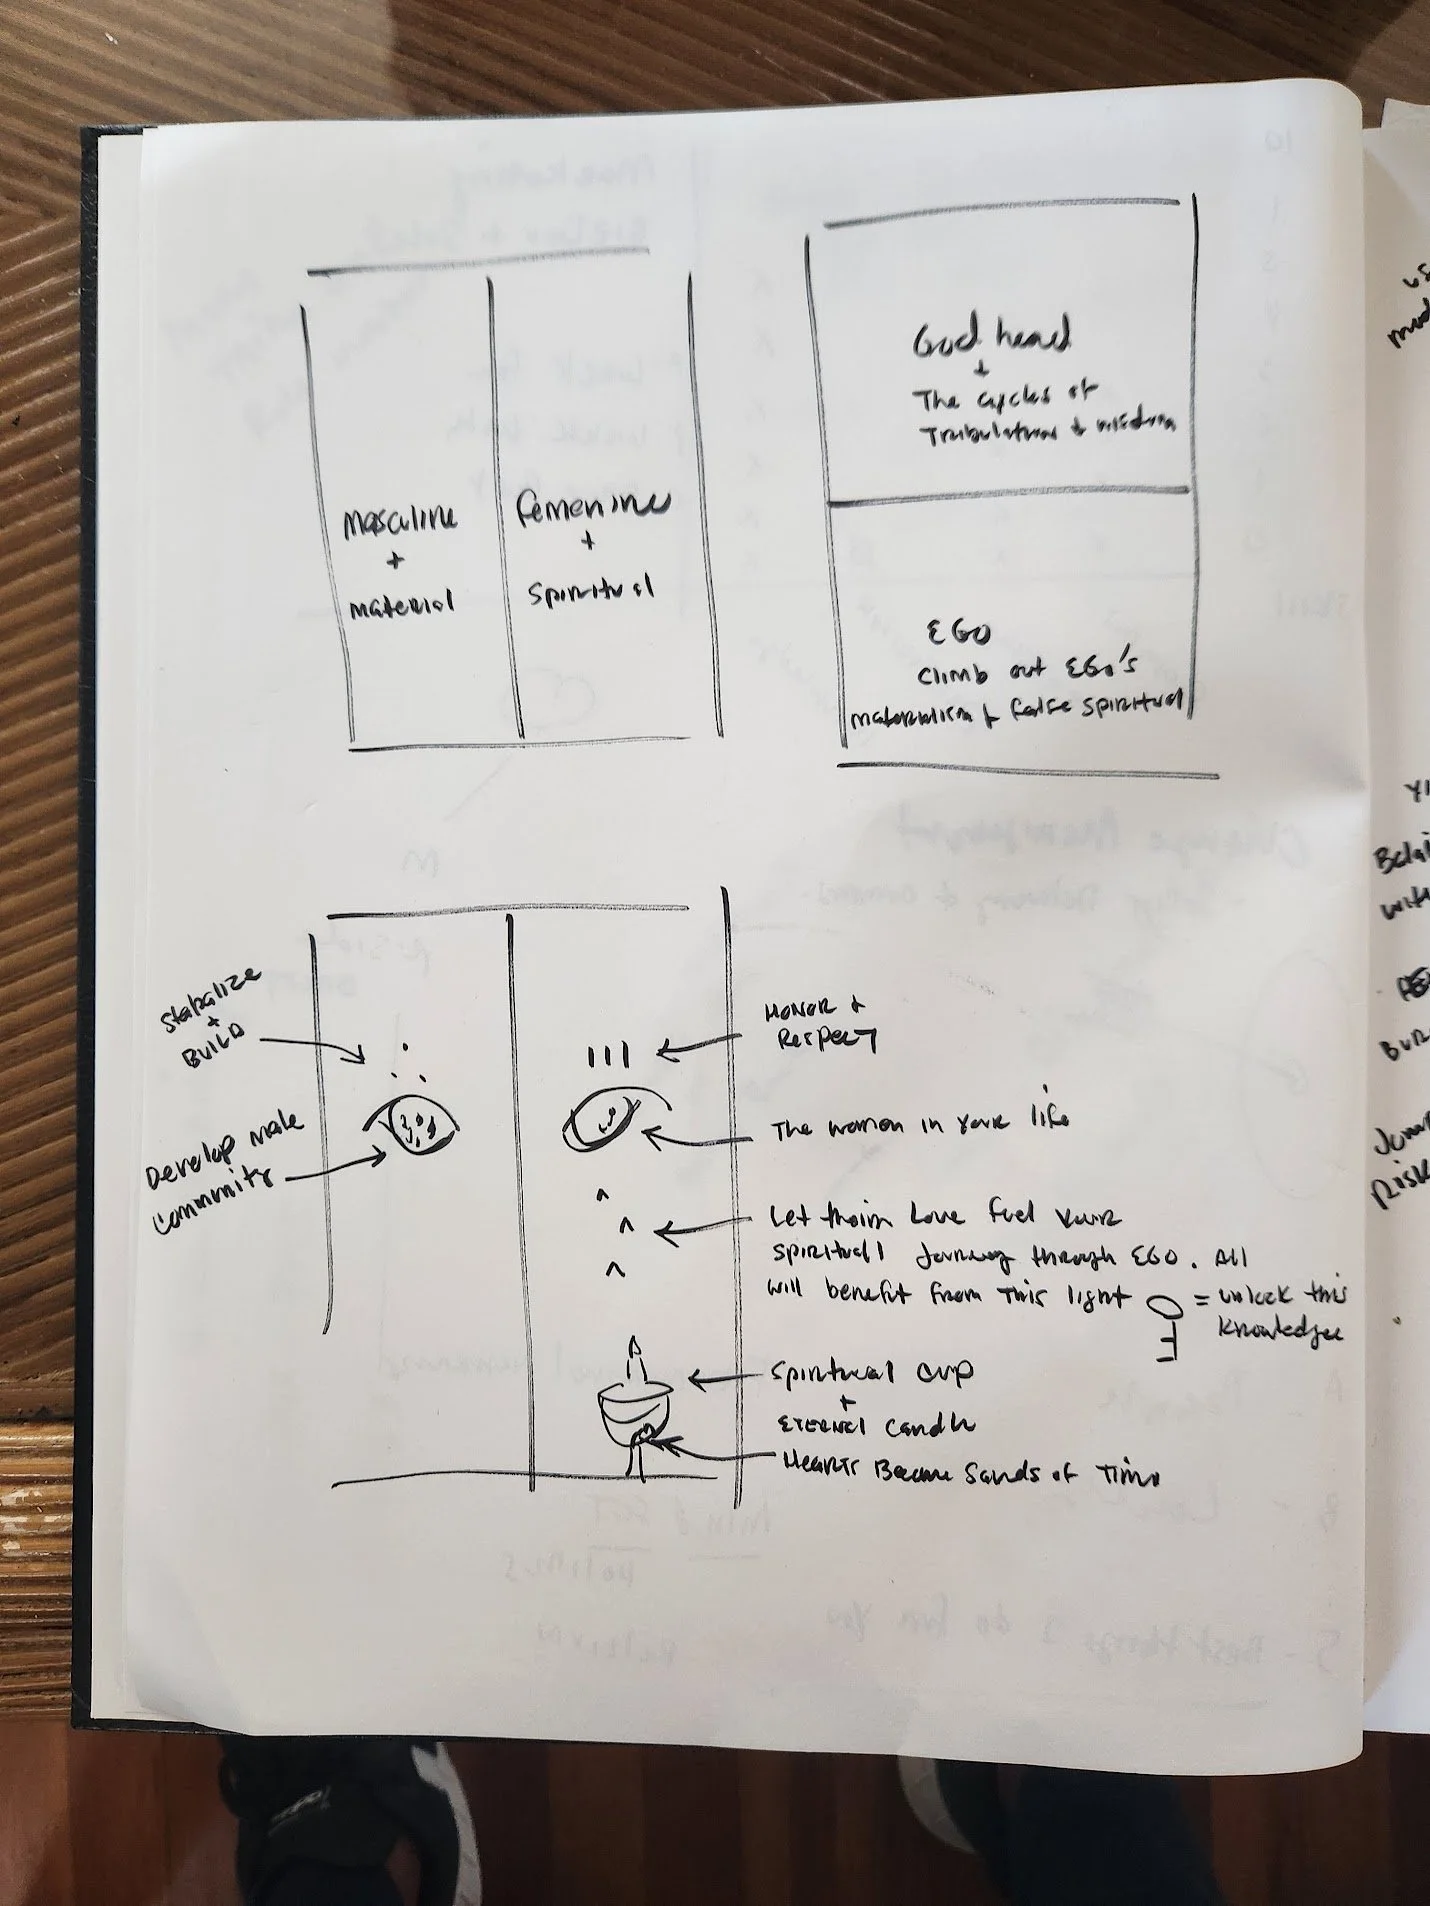 masculine
+
material
femenine
+
spiritual
God head
+
The cycles of
Tribulations + wisdom
EGO
Climb out EGO's
materialism + false spiritual
Stabalize
+
BUILD
Develop male
community
HONOR +
Respect
The women in your life
Let their Love fuel your
spiritual Journey through EGO. All
will benefit from this light
= unlock this
knowledge
Spiritual cup
+
ETERNAL candle
Hearts Become Sands of Time